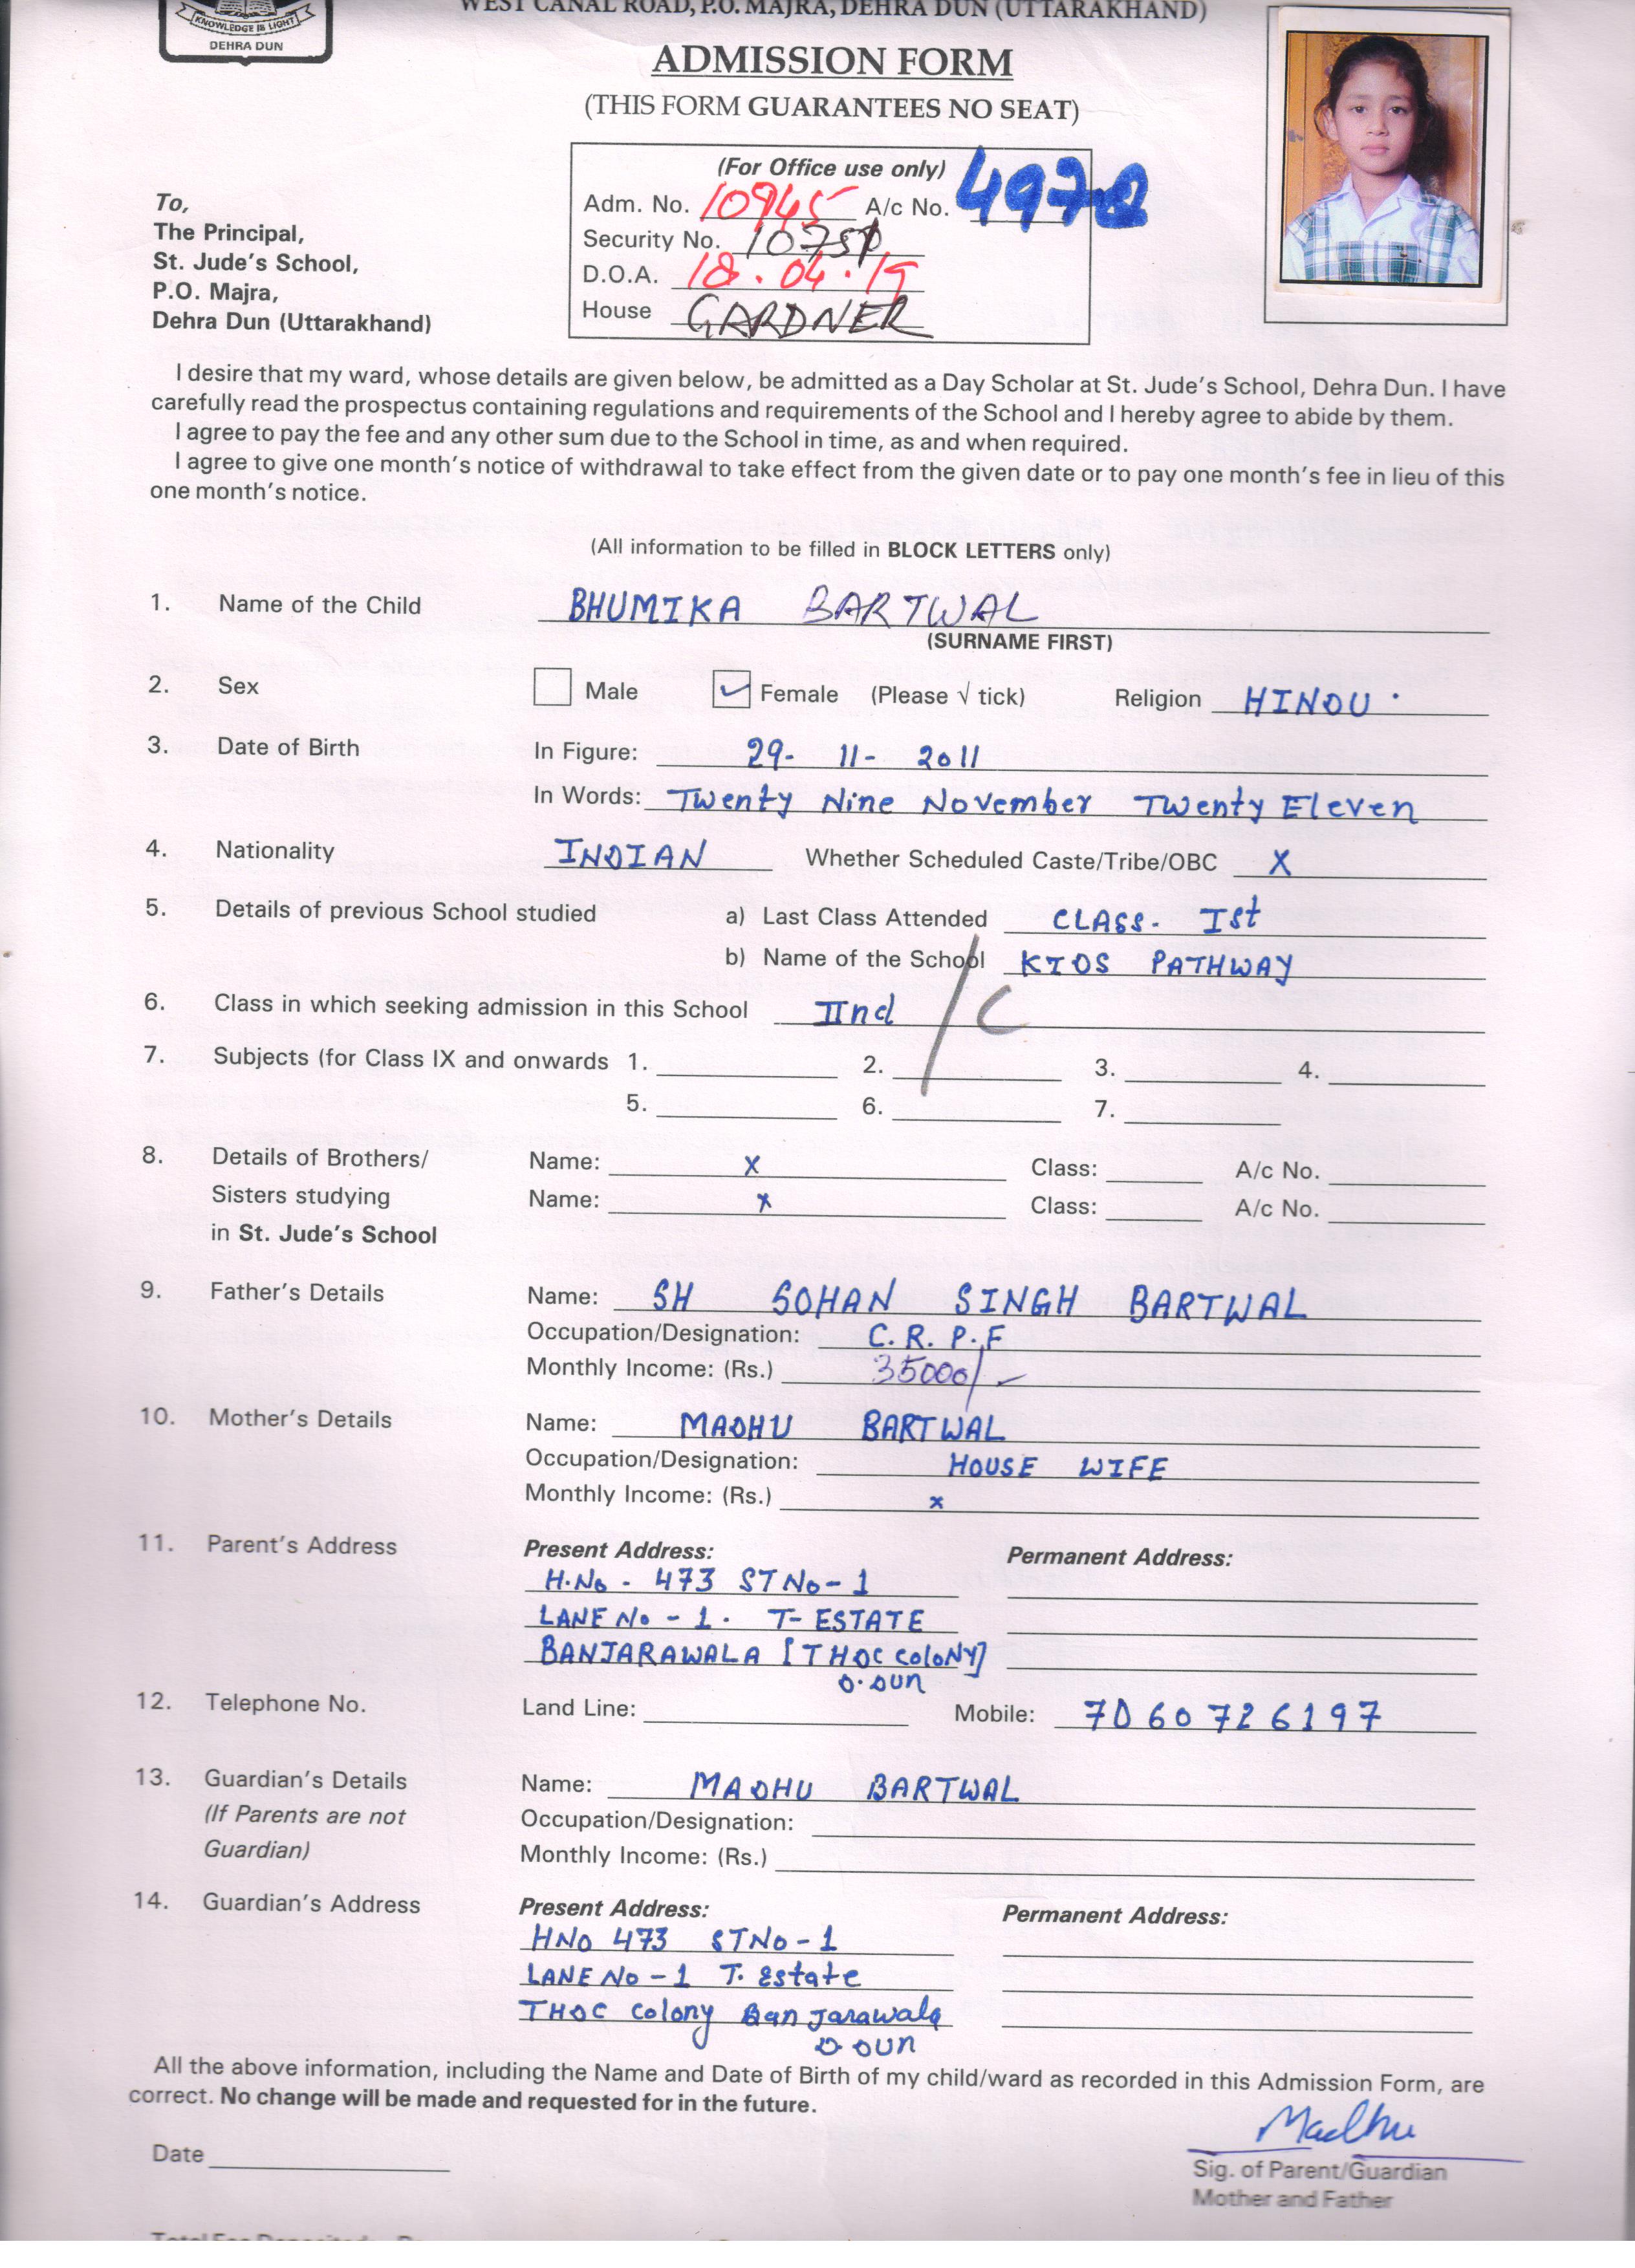 WEST CANAL ROAD, P.O. MAJRA, DEHRA DUN (UTTARAKHAND)
KNOWLEDGE IS LIGHT
DEHRA DUN
ADMISSION FORM
(THIS FORM GUARANTEES NO SEAT)
(For Office use only)
Adm. No. 10945 A/c No. 4978
Security No.
D.O.A. 18.04.19
House GARDNER
To,
The Principal,
St. Jude's School,
P.O. Majra,
Dehra Dun (Uttarakhand)
I desire that my ward, whose details are given below, be admitted as a Day Scholar at St. Jude's School, Dehra Dun. I have
carefully read the prospectus containing regulations and requirements of the School and I hereby agree to abide by them.
I agree to pay the fee and any other sum due to the School in time, as and when required.
I agree to give one month's notice of withdrawal to take effect from the given date or to pay one month's fee in lieu of this
one month's notice.
(All information to be filled in BLOCK LETTERS only)
1. Name of the Child BHUMIKA BARTWAL
(SURNAME FIRST)
2. Sex Male Female (Please √ tick) Religion HINDU
3. Date of Birth In Figure: 29- 11- 2011
In Words: Twenty Nine November Twenty Eleven
4. Nationality INDIAN Whether Scheduled Caste/Tribe/OBC X
5. Details of previous School studied a) Last Class Attended CLASS- Ist
b) Name of the School KIDS PATHWAY
6. Class in which seeking admission in this School IInd / C
7. Subjects (for Class IX and onwards 1. 2. 3. 4.
5. 6. 7.
8. Details of Brothers/ Name: x Class: A/c No.
Sisters studying Name: x Class: A/c No.
in St. Jude's School
9. Father's Details Name: SH SOHAN SINGH BARTWAL
Occupation/Designation: C.R.P.F
Monthly Income: (Rs.) 35000/-
10. Mother's Details Name: MADHU BARTWAL
Occupation/Designation: HOUSE WIFE
Monthly Income: (Rs.) x
11. Parent's Address Present Address: Permanent Address:
H.No - 473 ST No-1
LANE No - 1. T- ESTATE
BANJARAWALA [THDC coloNY]
D.DUN
12. Telephone No. Land Line: Mobile: 7060726197
13. Guardian's Details Name: MADHU BARTWAL
(If Parents are not Occupation/Designation:
Guardian) Monthly Income: (Rs.)
14. Guardian's Address Present Address: Permanent Address:
HNO 473 STNo-1
LANE No -1 T. Estate
THDC colony Banjarawala
D.DUN
All the above information, including the Name and Date of Birth of my child/ward as recorded in this Admission Form, are
correct. No change will be made and requested for in the future.
Madhu
Date
Sig. of Parent/Guardian
Mother and Father